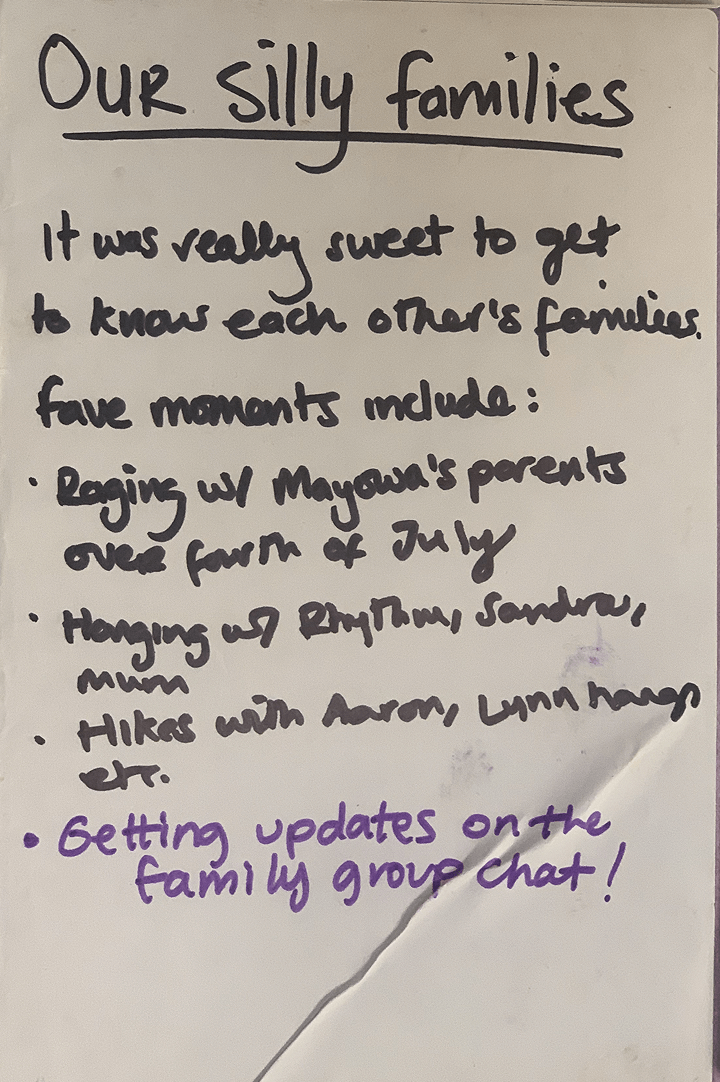 OUR silly families
It was really sweet to get
to know each other's families.
fave moments include:
• Raging w/ Mayowa's parents
over fourth of July
• Hanging w/ Rhythm, Sandra,
mum
• Hikes with Aaron, Lynn hangs
etc.
• Getting updates on the
family group chat!